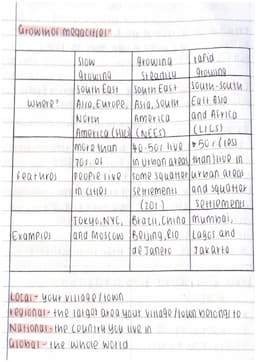 Growth of megacities:
slow growing
growing steadily
rapid growing
where?
South East
Asia, Europe,
North
America (HICs)
South East
Asia, South
America
(NEEs)
South-South
East Asia
and Africa
(LICs)
features
more than
70% of
people live
in cities
40-50% live
in urban areas
some squatter
settlements
(20%)
50% / less
than live in
urban areas
and squatter
settlements
Examples
Tokyo, NYC,
and Moscow
Brazil, China
Beijing, Rio
de Janeiro
Mumbai,
Lagos and
Jakarta
Local - your village/town
regional - the larger area your village/town belongs to
National - the country you live in
Global - the whole world